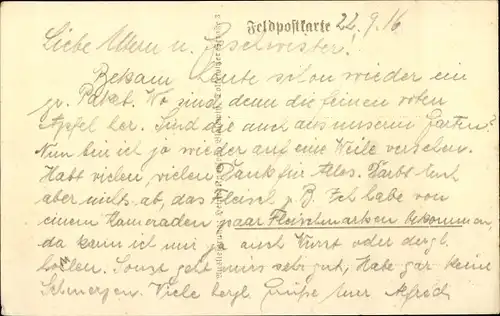 Feldpostkarte 22.9.16
Liebe Eltern u. Geschwister!
Bekam heute schon wieder ein
gr. Paket. Wo sind denn die feinen roten
Äpfel her. Sind die auch aus unserm Garten?
Nun bin ich ja wieder auf eine Weile versehen.
Habt vielen, vielen Dank für Alles. Darbt Euch
aber nichts ab, das Fleisch z. B. Ich habe von
einem Kameraden paar Fleischmarken bekommen,
da kann ich mir ja auch Wurst oder dergl.
holen. Sonst geht mirs sehr gut, Habe gar keine
Schmerzen. Viele herzl. Grüße Euer Alfred